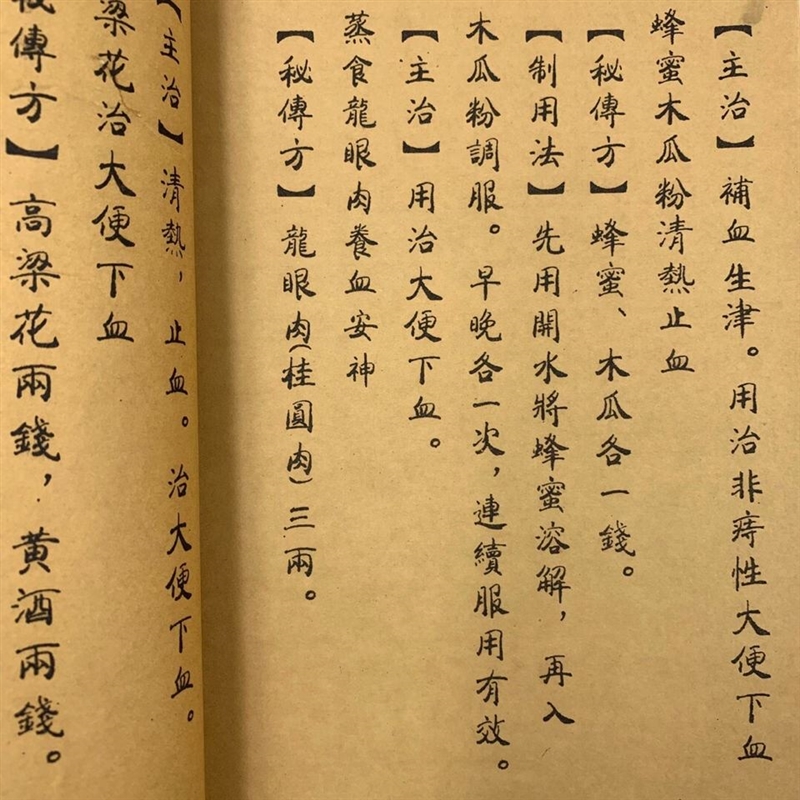 【主治】補血生津。用治非痔性大便下血
蜂蜜木瓜粉清熱止血
【秘傳方】蜂蜜、木瓜各一錢。
【制用法】先用開水將蜂蜜溶解，再入
木瓜粉調服。早晚各一次，連續服用有效。
【主治】用治大便下血。
蒸食龍眼肉養血安神
【秘傳方】龍眼肉(桂圓肉)三兩。
【主治】清熱，止血。治大便下血。
梁花治大便下血
秘傳方】高梁花兩錢，黃酒兩錢。